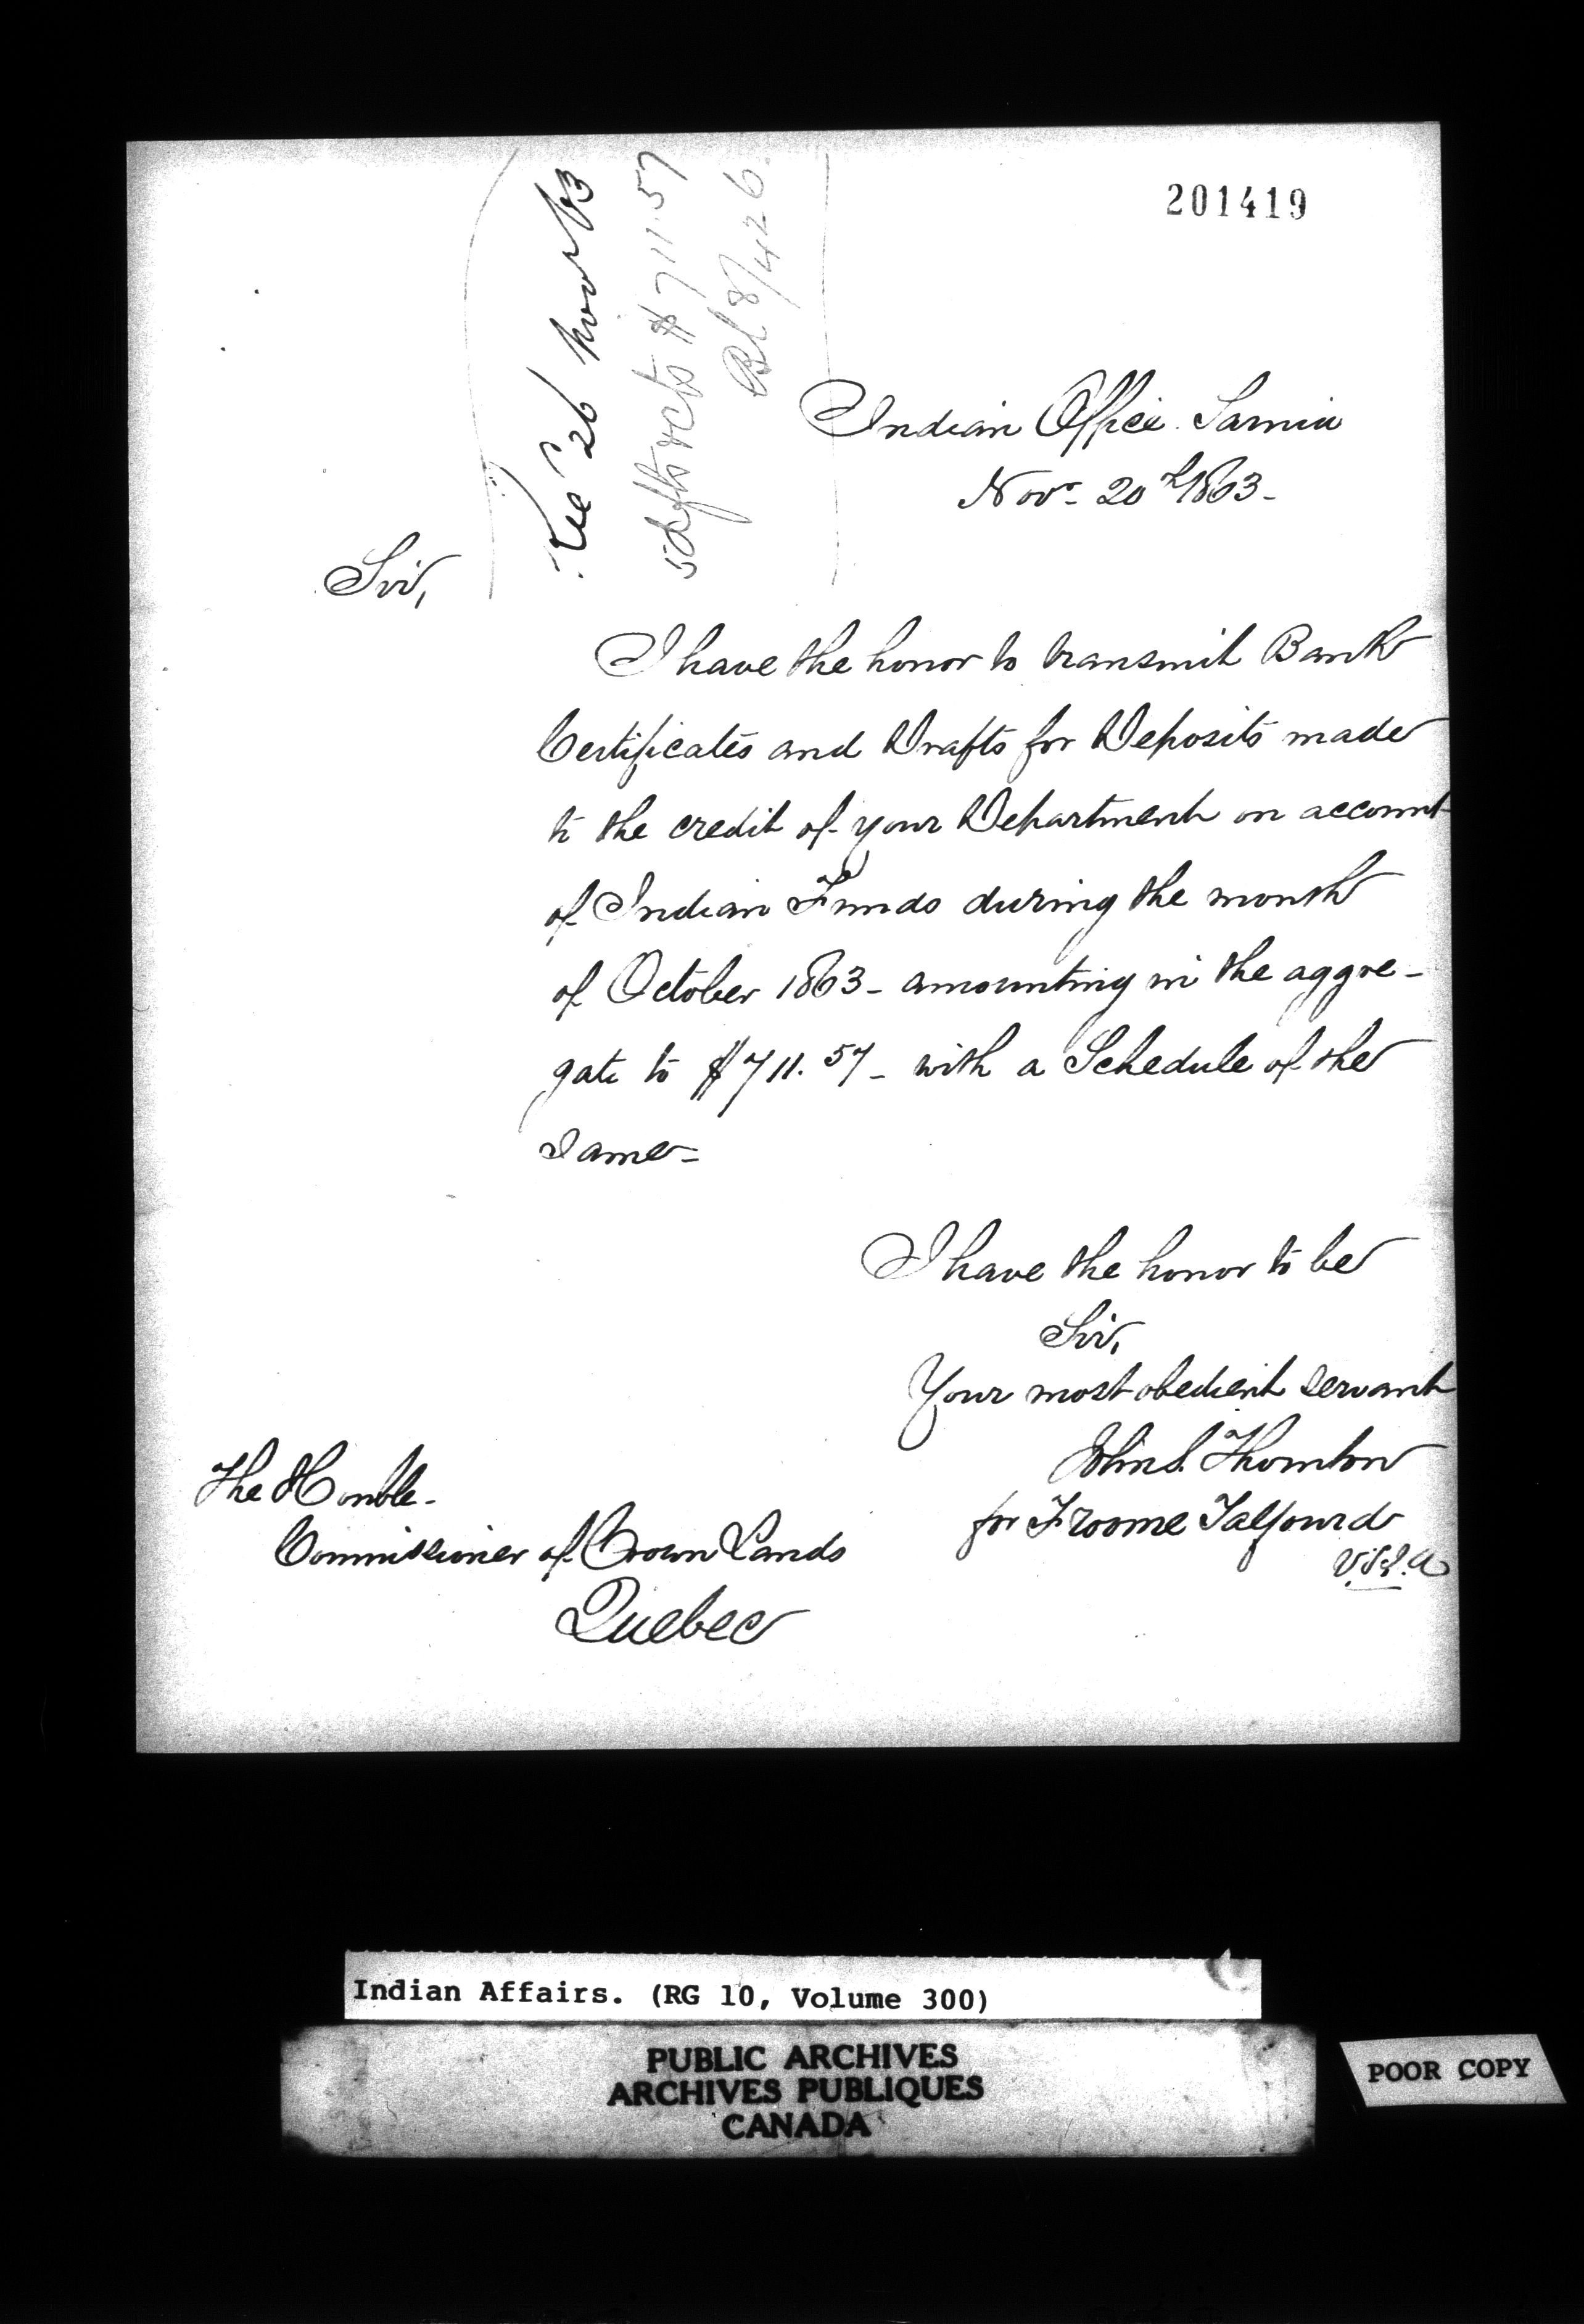 201419
Rec'd 26 Nov 63
5 dfts & rcts $711.57
Bk 8/426.
Indian Office. Sarnia
Novr. 20th 1863-
Sir,
I have the honor to transmit Bank
Certificates and Drafts for Deposits made
to the credit of your Department on account
of Indian Funds during the month
of October 1863- amounting in the aggre-
gate to $711.57- with a Schedule of the
Same=
I have the honor to be
Sir,
Your most obedient servant
John S. Thornton
for Froome Talfourd
V.S.I.A
The Honble.
Commissioner of Crown Lands
Quebec
Indian Affairs. (RG 10, Volume 300)
PUBLIC ARCHIVES
ARCHIVES PUBLIQUES
CANADA
POOR COPY